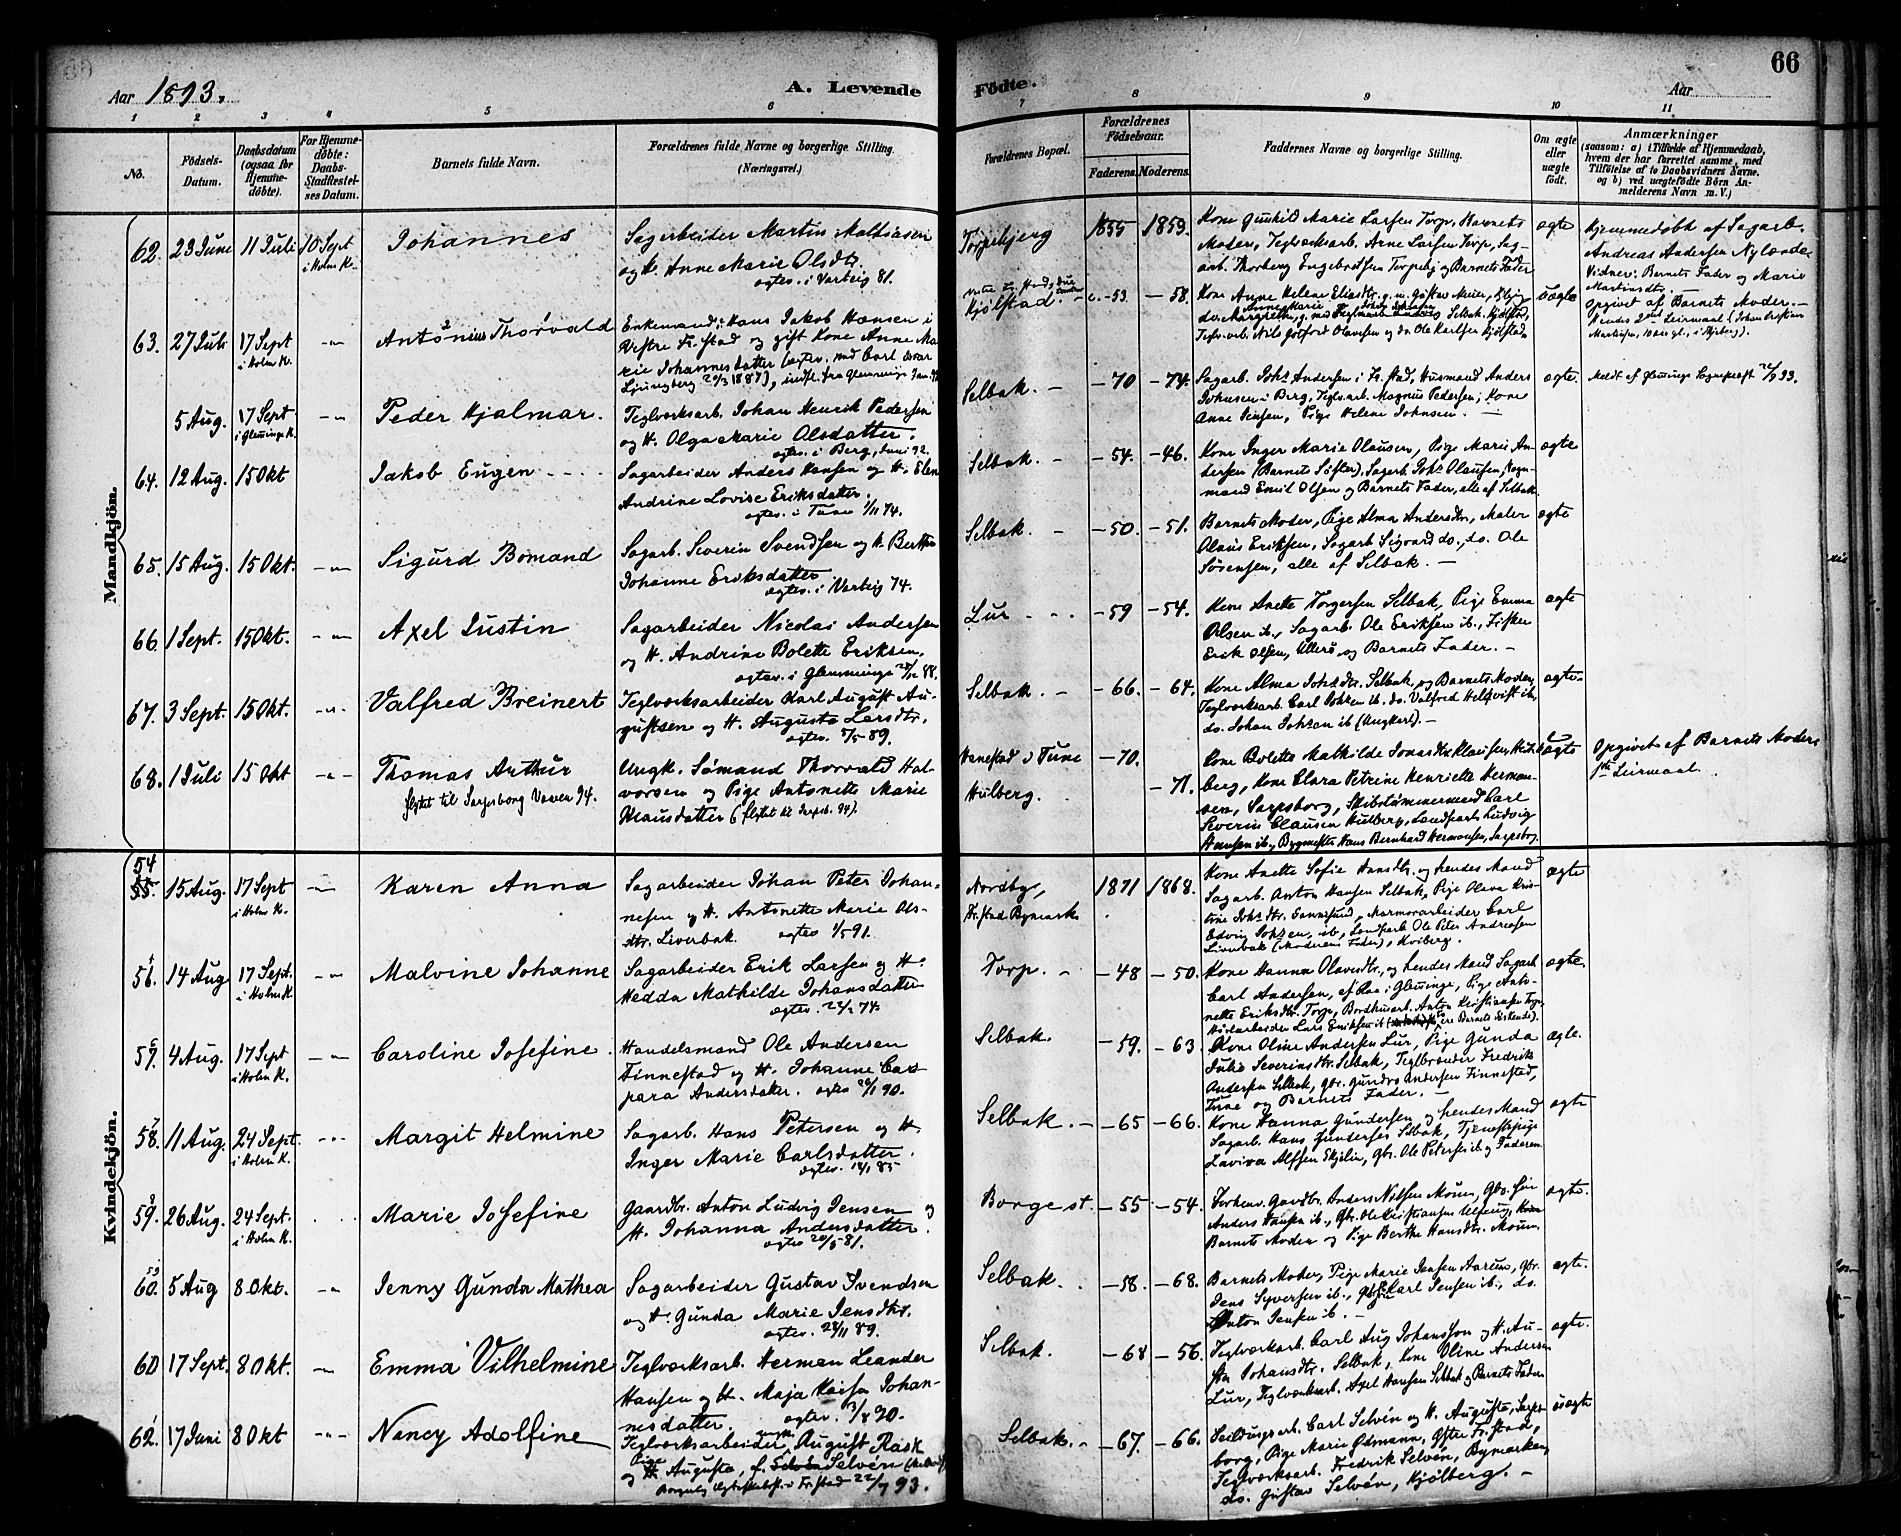 Aar 1893.
A. Levende
1 2 3 4 5 6
No.
Fødsels-Datum.
Daabsdatum (ogsaa for Hjemmedøbte).
For Hjemmedøbte: Daabs-Stadfestelses Datum.
Barnets fulde Navn.
Forældrenes fulde Navne og borgerlige Stilling.
(Næringsvei.)
Mandkjön.
62. 23 Juni 11 Juli 10 Sept i Holm K. Johannes
Sagarbeider Martin Mathiasen
og H. Anne Marie Olsdtr.
egtev. i Varteig 81.
63. 27 Juli 17 Sept i Holm K. Antonius Thorvald
Enkemand Hans Jakob Hansen i
Vestre Fr.stad og gift Kone Anne Ma
rie Johannesdatter (egtev. med Carl
Ljungberg 20/3 1887), indfl. fra Glemminge
5 Aug. 17 Sept i Glemminge K. Peder Hjalmar.
Teglværksarb. Johan Henrik Pedersen
og H. Olga Marie Olsdatter.
egtev. i Berg, Juni 92.
64. 12 Aug. 15 Okt Jakob Eugen
Sagarbeider Anders Hansen og H. Elen
Andrine Lovise Eriksdatter.
egtev. i Tune 1/11 74.
65. 15 Aug. 15 Okt. Sigurd Bomand
Sagarb. Severin Svendsen og H. Berthe
Johanne Eriksdatter
egtev. i Varteig 74.
66. 1 Sept. 15 Okt. Axel Justin
Sagarbeider Nicolai Andersen
og H. Andrine Bolette Eriksen.
egtev. i Glemminge 88.
67. 3 Sept. 15 Okt. Valfred Breinert
Teglværksarbeider Karl August Au-
gustsen og H. Augusta Larsdtr.
egtev. 5/5 89.
68. 1 Juli 15 Okt Thomas Arthur
flyttet til Sarpsborg 94.
Ungk. Sømand Thorvald Hal-
vorsen og Pige Antonette Marie
Klausdatter (flyttet til Sarpsb. 94).
Kvindekjön.
54
55. 15 Aug. 17 Sept i Holm K. Karen Anna
Sagarbeider Johan Peter Johan-
nesen og H. Antonette Marie Ols-
dtr. Liverbak. egtev 1/5 91.
56. 14 Aug 17 Sept. i Holm K. Malvine Johanne
Sagarbeider Erik Larsen og H.
Hedda Mathilde Johansdatter
57. 4 Aug. 17 Sept i Holm K. Caroline Josefine.
Handelsmand Ole Andersen
Finnestad og H. Johanne Cas
para Andersdatter.
58. 11 Aug. 24 Sept. i Holm K. Margit Helmine
Sagarb. Hans Petersen og H.
Inger Marie Carlsdatter.
59. 26 Aug. 24 Sept. i Holm K. Marie Josefine
Gaardbr. Anton Ludvig Jensen og
H. Johanna Andersdatter.
egtev 20/5 81.
60. 5 Aug 8 Okt. Jenny Gunda Mathea
Sagarbeider Gustav Svendsen
og H. Gunda Marie Jensdtr.
60 17 Sept. 8 Okt. Emma Vilhelmine
Teglværksarb. Herman Leander
Hansen og H. Maja Kaisa Johan-
nesdatter.
62. 17 Juni 8 Okt Nancy Adolfine
Teglværksarbeider August Rask
og Pige Augusta, f. Selvén
Fr.stad 22/7 93.
Fødte.
Aar
66
7 8 9 10 11
Forældrenes Bopæl.
Forældrenes Fødselsaar.
Faderens. Moderens.
Faddernes Navne og borgerlige Stilling.
Om ægte eller uægte født.
Anmærkninger
(saasom: a) i Tilfælde af Hjemmedaab, hvem der har forrettet samme, med Tilføielse af to Daabsvidners Navne. og b) ved uægtefødte Børn Anmelderens Navn m. V.)
Torpebjerg 1855 1859.
Kone Gunhild Marie Larsen Torp, Barnets
Moder, Teglværksarb. Arne Larsen Torp, Sag-
arb. Thorberg Engebretsen Torpebj. og Barnets Fader
ægte
Hjemmedøbt af Sagarb.
Andreas Andersen Nylænde
Vidner: Barnets Fader og Marie
Martinsdtr.
Kjølstad. -53. -58.
uægte
Opgivet af Barnets Moder.
Selbak. -70 -74.
Sagarb. Johs Andersen i Fr.stad, Husmand Anders
Johnsen i Berg, Teglv.arb. Magnus Pedersen, Kone
Anne Jensen, Pige Helene Johnsen.
ægte.
Meldt af Glemminge Sognepræst 93.
Selbak. -54. -46.
Kone Inger Marie Olausen, Pige Marie An-
dersen (Barnets Søster), Sagarb. Johs Olausen,
mand Emil Olsen og Barnets Fader, alle af Selbak.
ægte
Selbak. -50. -51.
Barnets Moder, Pige Alma Andersdtr., Maler
Olaus Eriksen, Sagarb Sigvard do., do. Ole
Sørensen, alle af Selbak.
ægte
Lur -59 -54.
Kone Anette Torgersen Selbak, Pige Emma
Olsen ib., Sagarb. Ole Eriksen ib., Fisker
Erik Olsen, Ullerø, og Barnets Fader.
ægte
Selbak. -66. -64.
Kone Alma Johsdtr. Selbak, og Barnets Moder,
Teglværksarb. Carl Johsen ib. do. Valfred Hellqvist ib,
do. Johan Johsen ib (Ungkarl).
ægte.
Hanestad i Tune -70.
Hulberg. -71.
Kone Bolette Mathilde Klausen, Hul-
berg, Kone Clara Petrine Henriette Herman-
sen, Sarpsborg, Skibstømmermand Carl
Severin Clausen Hulberg, Ludvig
Hansen ib., Bygmester Hans Bernhard Hermansen, Sarpsborg.
uægte
Opgivet af Barnets Moder
1ste Leiermaal.
Nordby,
Fr.stad Bymark
1871 1868.
Kone Anette Sofie Hansdtr. og hendes Mand
Sagarb. Anton Hansen Selbak, Pige Olava Kris-
tine Johs dtr. Marmorarbeider Carl
Edvin Johsen, ib, Ole Peter Andreasen
Liverbak (Moderens Fader), Kviberg.
ægte
Torp. -48 -50.
Kone Hanna Olavesdtr., og hendes Mand Sagarb
Carl Andersen, af Raa i Glemminge, Pige Anto-
nette Eriksdtr. Torp, Bordhusarb. Anton Kristiansen Torp,
Lars Eriksen ib
ægte.
Selbak. -59. -63
Kone Oline Andersen Lur, Pige Gunda
Julie Severinsdtr. Selbak, Teglbrænder Fredrik
Andersen Selbak, Gbr. Gundro Andersen Finnestad,
Tune og Barnets Fader.
ægte.
Selbak. -65 -66.
Kone Hanna Gundersen og hendes Mand
Sagarb. Hans Gundersen Selbak, Tjenestepige
Laviva Alfsen Skjelin, Gbr. Ole Petersen ib. og Faderen
ægte
Borge st. -55 -54.
Forhenv. Gaardbr. Anders Nilsen Moum, Gbr. Søn
Anders Hansen ib., Gbr. Ole Kristiansen
Barnets Moder og Pige Berthe Hansdtr. Moum.
ægte.
Selbak. -58. -68.
Barnets Moder, Pige Marie Jensen Aarum, Gbr.
Jens Syversen ib., Karl Jensen ib., do.
Anton Jensen ib.
ægte.
Selbak. -68 -56.
Teglværksarb. Carl Aug Johansson og H. Au-
sta Johansdtr. Selbak, Kone Oline Andersen
Lur, Teglværksarb. Axel Hansen Selbak og Barnets Fader
ægte.
Selbak. -67. -66.
Carl Selvén og H. Augusta, Sarps-
borg, Pige Marie Østmann, Fr.stad,
Teglværksarb. Fredrik Selvén, Bymarken,
do. Gustav Selvén, Kjølberg.
uægte